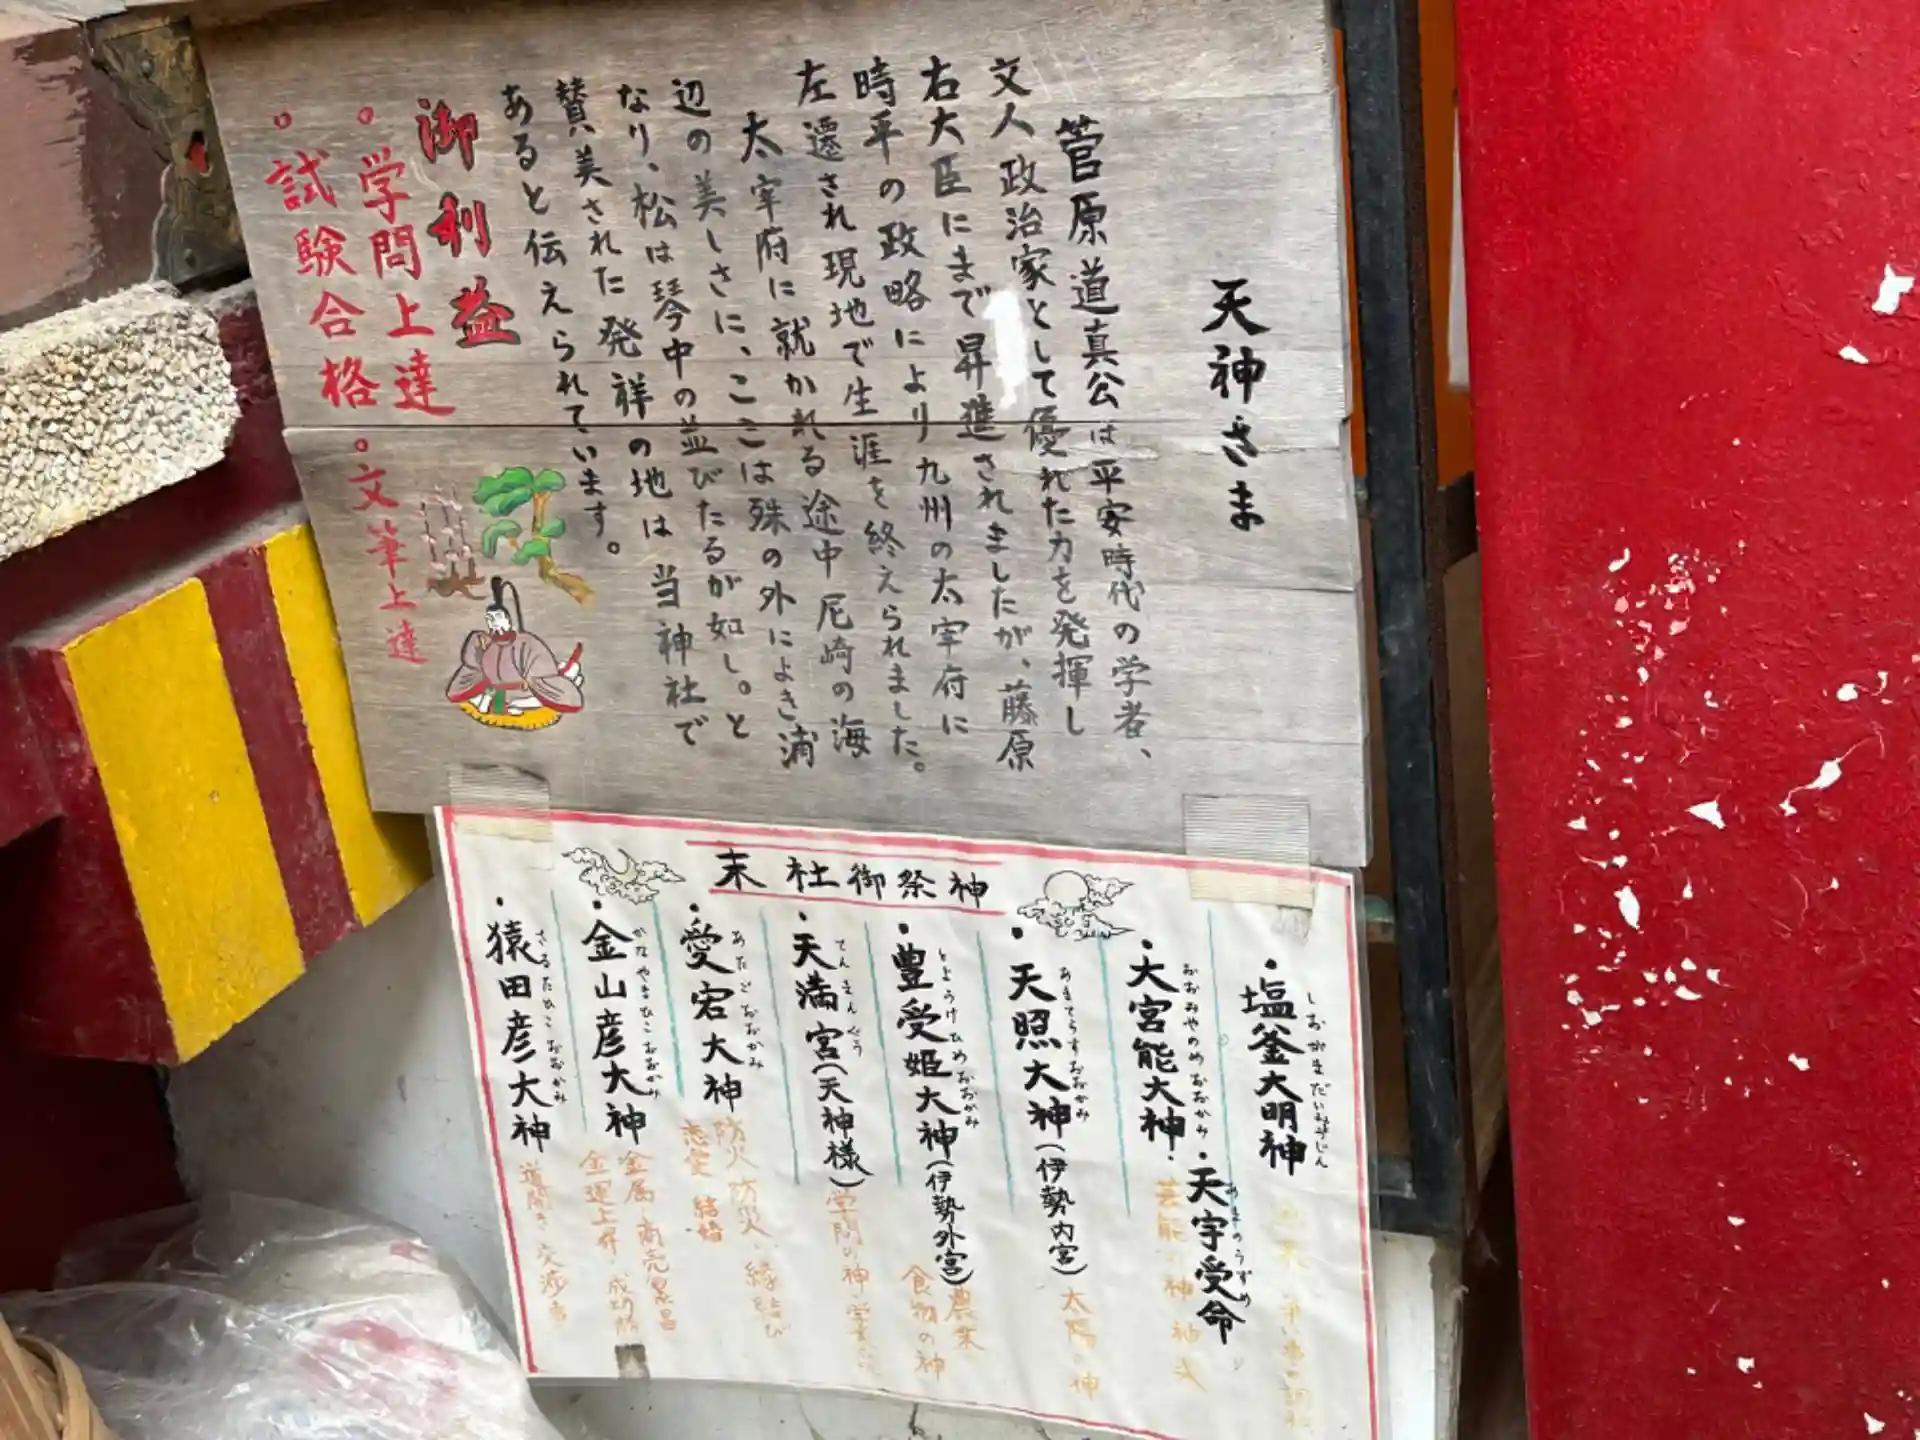 天神さま
菅原道真公は平安時代の学者、
文人政治家として優れた力を発揮し
右大臣にまで昇進されましたが、藤原
時平の政略により九州の太宰府に
左遷され現地で生涯を終えられました。
太宰府に就かれる途中尼崎の海
辺の美しさに、ここは殊の外によき浦
なり、松は琴中の並びたるが如し。と
賛美された発祥の地は当神社で
あると伝えられています。
御利益
。学問上達
。試験合格。文筆上達
末社御祭神
・塩釜大明神
しおがまだいみょうじん
・大宮能大神・天宇受命
おおみやのめおおかみ
あまのうずめ
芸能の神
・天照大神(伊勢内宮)
あまてらすおおかみ
太陽の神
・豊受姫大神(伊勢外宮)
とようけひめおおがみ
農業
食物の神
・天満宮(天神様)
てんまんぐう
学問の神
・愛宕大神
あたごおおかみ
防火防災 縁結び
恋愛 結婚
・金山彦大神
かなやまひこおおがみ
金属 商売繁昌
金運上昇
・猿田彦大神
さるたひこおおかみ
道開き